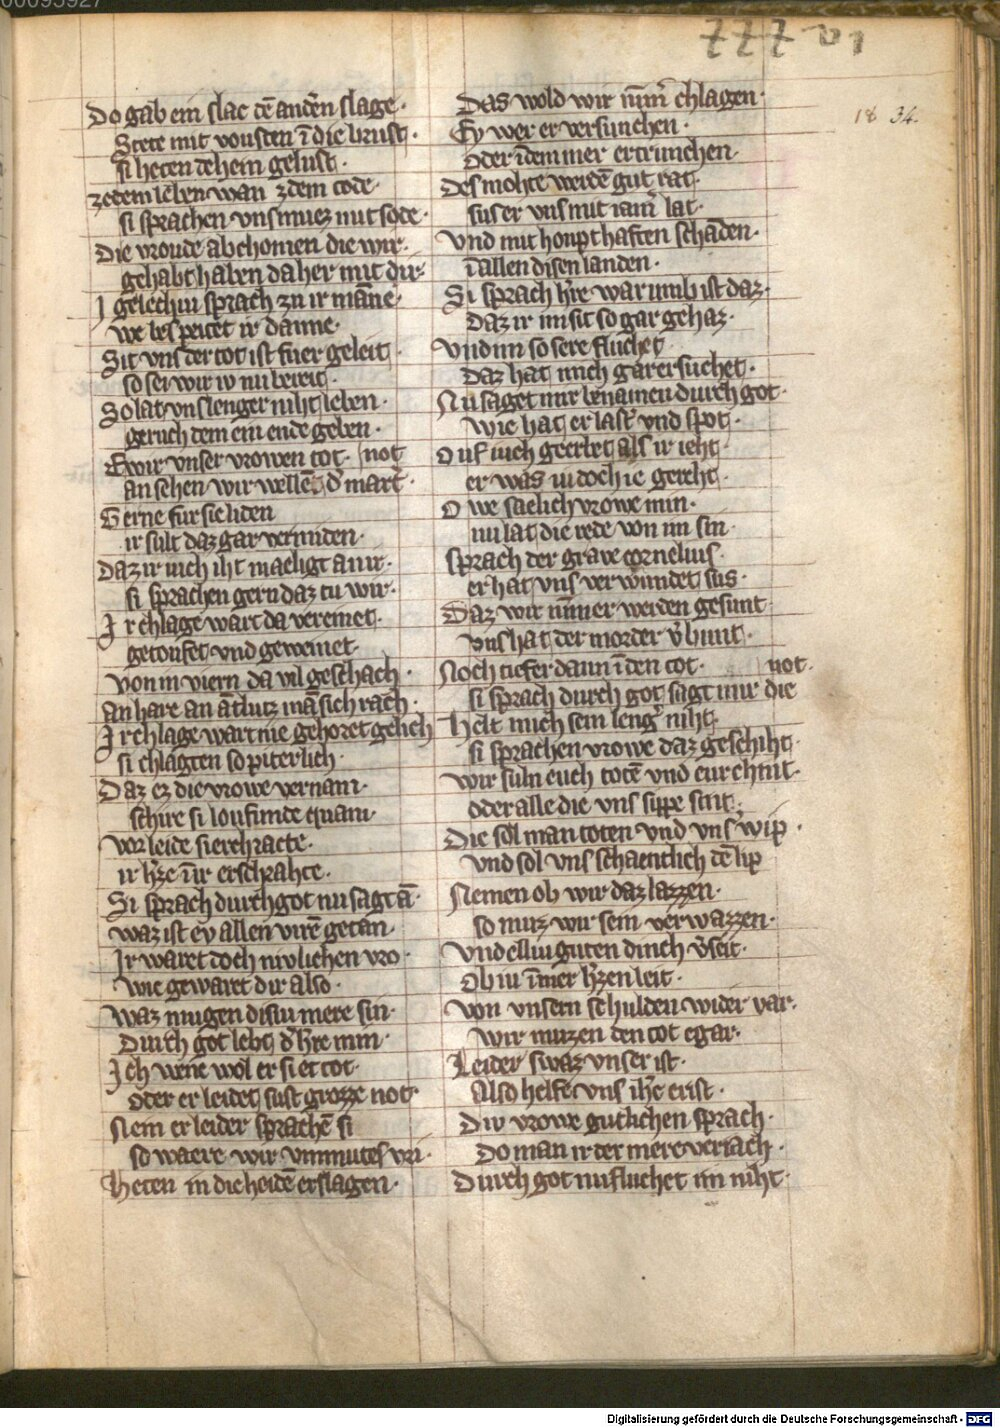 Do gab ein slac dē andēn slage·
Stete mit vousten ī die brust·
si heten dehein gelust·
ze dem lebn wan zdem tode·
si sprachen vns muez mit sode·
Die vroude ab chomen die wir·
gehabt habn da her mit dir·
J gelechiu sprach zu ir manne
we bespeitet ir danne·
Sit vns der tot ist fuer geleit·
so sei wir iv nu bereit·
So lat vns lenger niht leben·
geruch dem ein ende geben·
E wir vnser vrowen tot· not
an sehen wir wellē d' mart'·
Gerne fur sie liden
ir sult daz gar vermiden·
Daz ir iuch iht maeligt an ir·
si sprachen gern daz tu wir·
Jr chlage wart da vereinet·
getoufet vnd geweinet·
von in viern da vil geschach·
an hare an ātlutz mā sich rach·
Jr chlage wart nie gehoret gelich
si chlagten so piterlich·
Daz ez die vrowe vernam·
schire si loufunde quam·
vor leide si erchracte·
ir h'ze in ir erschrahte·
Si sprach durch got nu sagt ā
waz ist ev allen virē getan·
Jr waret doch nivlichen vro·
wie gewaret dir also·
Waz mugen disiu mere sin·
Durch got lebt d' h're min·
Jch wene wol er si et tot·
oder er leidet sust grozze not·
Nein er leider sprachē si
so waere wir vnmutes vri·
Heten in die heidē erslagen·
Das wold wir nīm' chlagen·
Ey wer er versunchen·
oder ī dem mer ertrunchen·
Des mohte werdē gut rat·
sus er vns mit iam' lat·
Vnd mit houpthaften schaden·
ī allen disen landen·
Si sprach h're war umb ist daz·
Daz ir im sit so gar gehaz·
Vnd im so sere fluchet·
Daz hat mich gar ersuchet·
Nu saget mir benamen durch got·
wie hat er last' vnd spot·
Ouf iuch geerbet als ir ieht·
er was iu doch ie gereht·
O we saelich vrowe min·
nu lat die rede von im sin·
sprach der grave cornelius·
er hat vns verwundet sus·
Daz wir nīmer werden gesunt
vns hat der morder v'bunt·
Noch tiefer dann ī den tot· not·
si sprach durch got sagt mir die
Helt mich sein leng' niht·
si sprachen vrowe daz geschiht·
wir suln euch totē vnd eur chint·
oder alle die vns sippe sint·
Die sol man toten vnd vns' wip·
vnd sol vns schaentlich dē lip
Nemen ob wir daz lazzen·
so muz wir sein verwazzen·
Vnd elliu guten dinch v'seit·
Ob iu īmer h'zen leit·
Von vnsern schulden wider var·
wir muzen den tot e gar·
Leider swaz vnser ist·
Also helfe vns ih'c crist·
Div vrowe gutlichen sprach·
Do man ir der mere veriach·
Durch got nu fluchet im niht·
18 34.
Digitalisierung gefördert durch die Deutsche Forschungsgemeinschaft - DFG